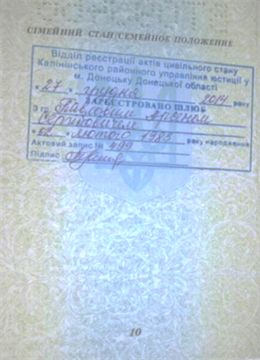 СІМЕЙНИЙ СТАН/СЕМЕЙНОЕ ПОЛОЖЕНИЕ
Відділ реєстрації актів цивільного стану
Калінінського районного управління юстиції у
м. Донецьку Донецької області
"27" грудня 2014 року
ЗАРЕЄСТРОВАНО ШЛЮБ
З гр.
"02" лютого 1983 року народження
Актовий запис № 499
Підпис
10